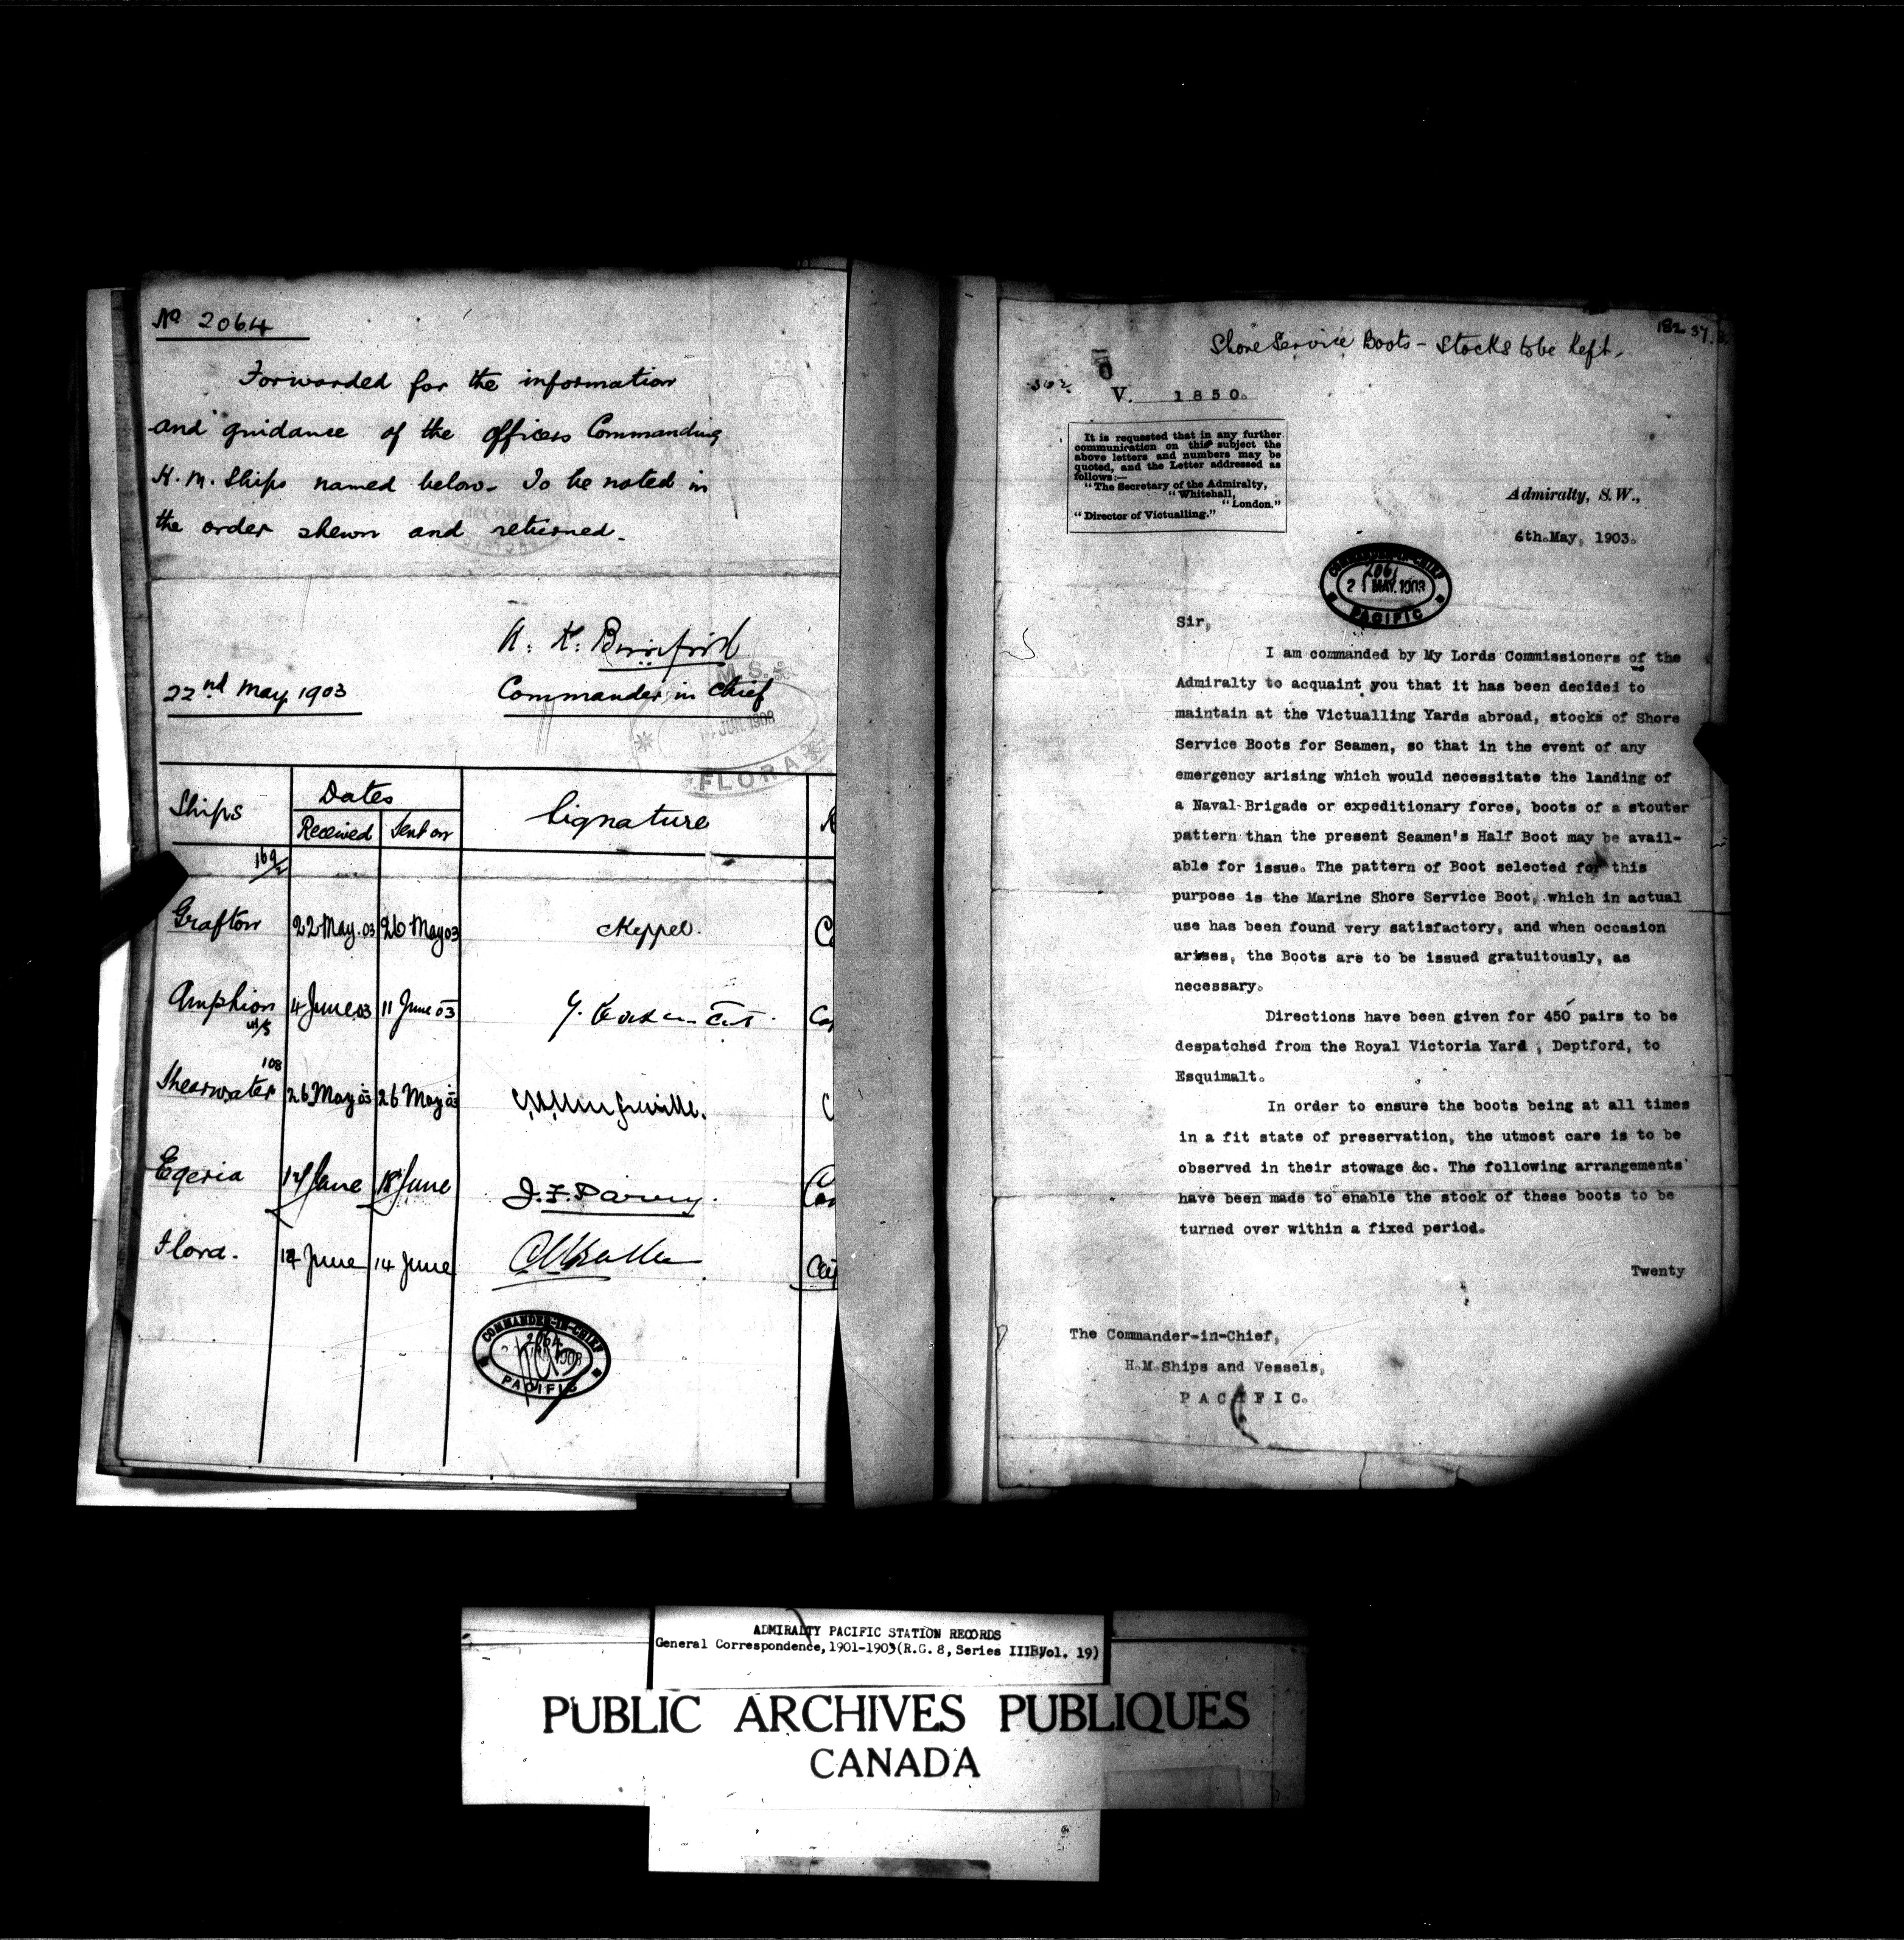 No 2064
Forwarded for the information
and guidance of the officers Commanding
H.M. Ships named below. To be noted in
the order shewn and returned.
22nd May 1903
Commander in Chief
M.S.
JUN. 1903
FLORA
Ships Dates Signature
Received Sent on
169/2
Grafton 22 May. 03 26 May 03 Keppel.
Amphion 4 June 03 11 June 03
108
Shearwater 26 May 03 26 May 03
Egeria 18 June J. F. Parry.
Flora. 14 June 14 June
COMMANDER-IN-CHIEF
2064
1903
PACIFIC
182 37
Shore Service Boots - Stocks to be kept.
V. 1850.
It is requested that in any further
communication on this subject the
above letters and numbers may be
quoted, and the Letter addressed as
follows:—
"The Secretary of the Admiralty,
"Whitehall,
"London."
"Director of Victualling."
Admiralty, S.W.,
6th. May, 1903.
COMMANDER-IN-CHIEF
21 MAY. 1903
PACIFIC
Sir,
I am commanded by My Lords Commissioners of the
Admiralty to acquaint you that it has been decided to
maintain at the Victualling Yards abroad, stocks of Shore
Service Boots for Seamen, so that in the event of any
emergency arising which would necessitate the landing of
a Naval Brigade or expeditionary force, boots of a stouter
pattern than the present Seamen's Half Boot may be avail-
able for issue. The pattern of Boot selected for this
purpose is the Marine Shore Service Boot, which in actual
use has been found very satisfactory, and when occasion
arises, the Boots are to be issued gratuitously, as
necessary.
Directions have been given for 450 pairs to be
despatched from the Royal Victoria Yard , Deptford, to
Esquimalt.
In order to ensure the boots being at all times
in a fit state of preservation, the utmost care is to be
observed in their stowage &c. The following arrangements
have been made to enable the stock of these boots to be
turned over within a fixed period.
Twenty
The Commander-in-Chief,
H.M.Ships and Vessels,
PACIFIC.
ADMIRALTY PACIFIC STATION RECORDS
General Correspondence, 1901-1903(R.G. 8, Series IIIB, Vol. 19)
PUBLIC ARCHIVES PUBLIQUES
CANADA